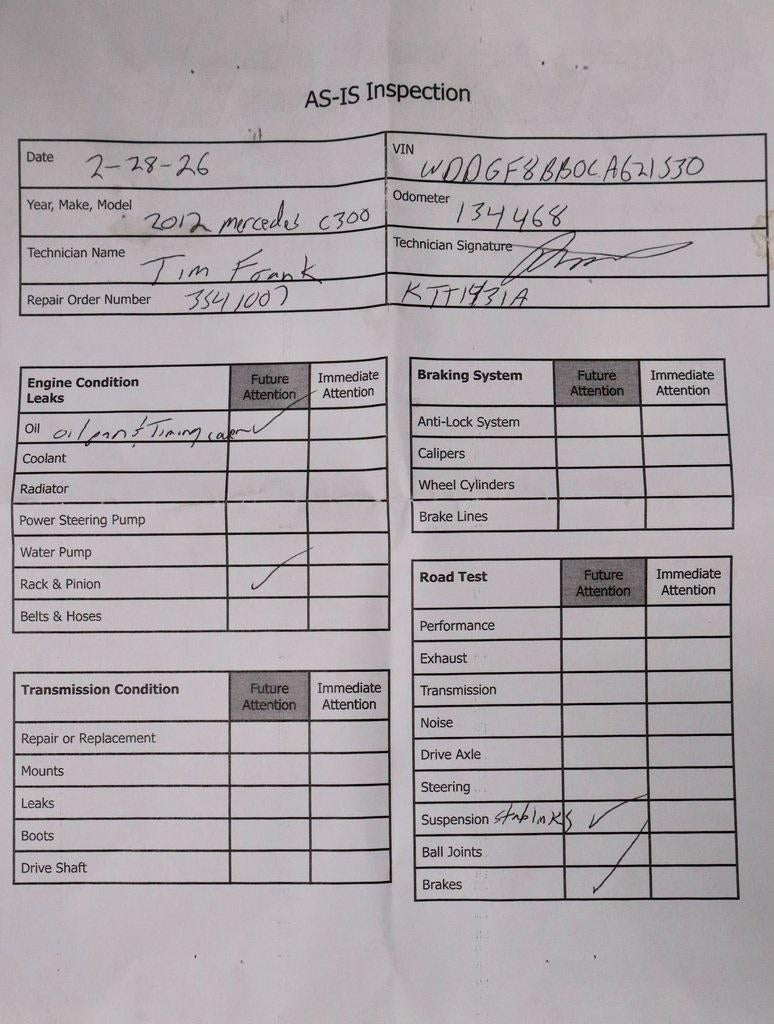 AS-IS Inspection
Date 2-28-26
VIN WDDGF8BB0CA621530
Year, Make, Model 2012 mercedes c300
Odometer 134468
Technician Name Tim Frank
Technician Signature
Repair Order Number 3541007
Engine Condition Leaks Future Attention Immediate Attention
Oil oil pan & Timing cover
Coolant
Radiator
Power Steering Pump
Water Pump
Rack & Pinion
Belts & Hoses
Transmission Condition Future Attention Immediate Attention
Repair or Replacement
Mounts
Leaks
Boots
Drive Shaft
Braking System Future Attention Immediate Attention
Anti-Lock System
Calipers
Wheel Cylinders
Brake Lines
Road Test Future Attention Immediate Attention
Performance
Exhaust
Transmission
Noise
Drive Axle
Steering
Suspension stab links
Ball Joints
Brakes